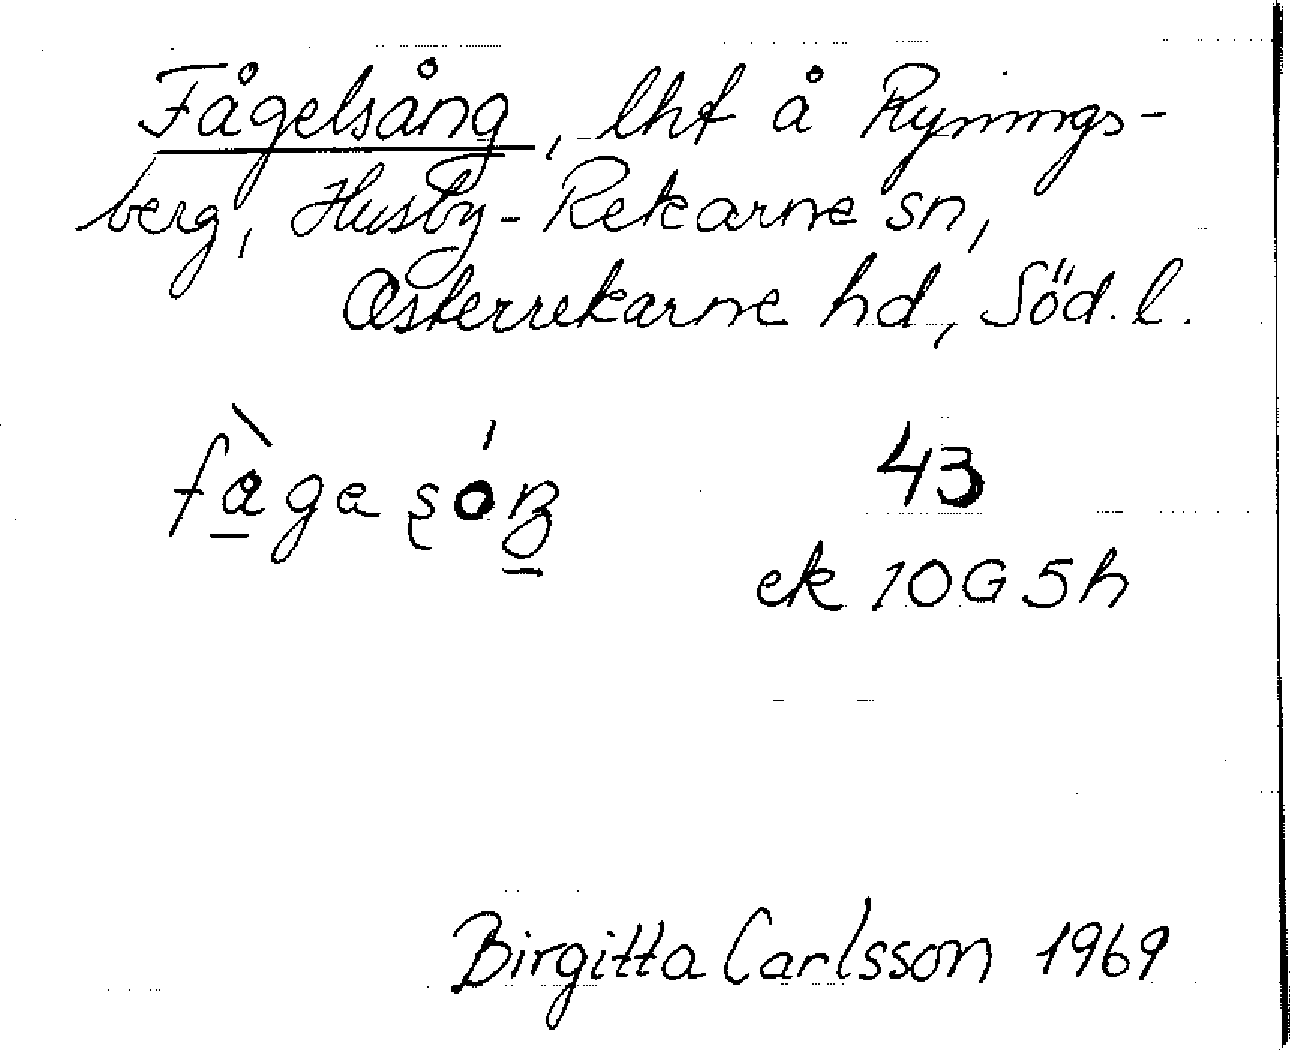 Fågelsång, lht å Rynings-
berg, Husby-Rekarne sn,
Österrekarne hd, Söd. l.
43
ek 10G5h
Birgitta Carlsson 1969